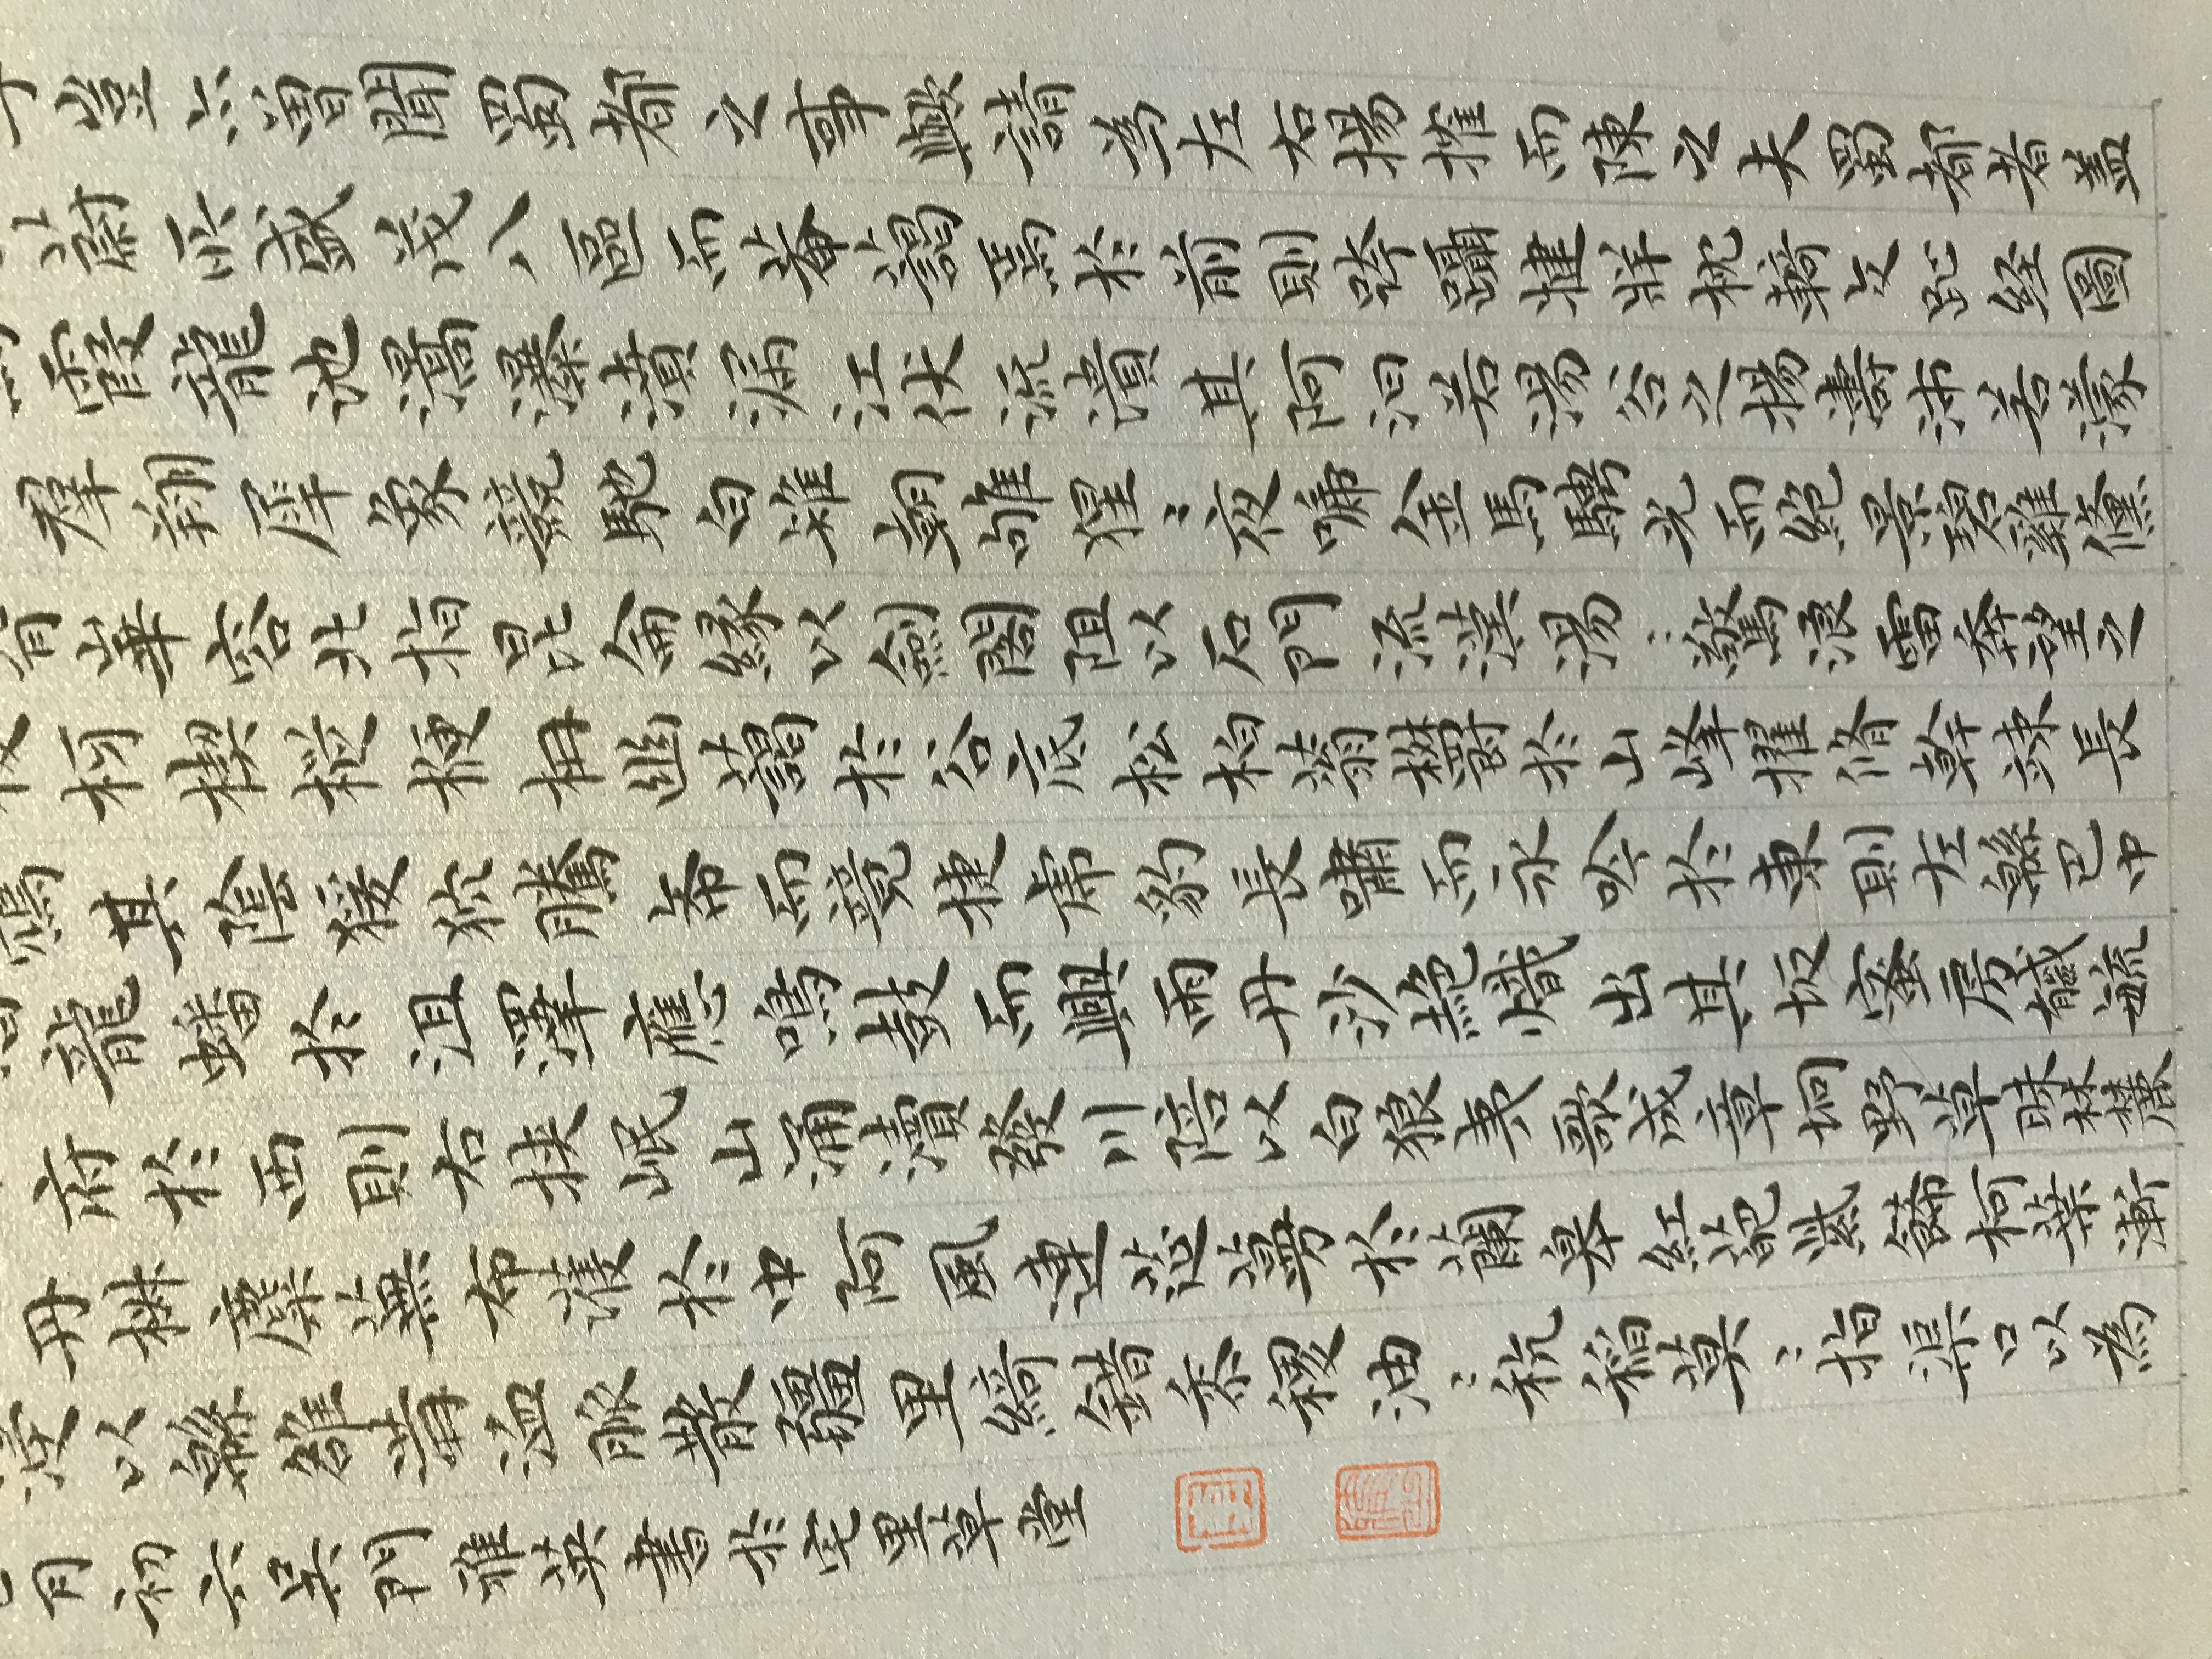 豈亦曾聞蜀都之事歟請為左右揚搉而陳之夫蜀都者蓋
蔚所盛茂八區而菴藹焉於前則跨躡犍牂枕輢交趾経圖
霞龍池㶀瀑濆漏江伏流潰其阿汩若湯谷之揚濤沛若濛
羣翔犀象競馳白雉朝雊猩〻夜啼金馬騁光而絕景碧雞儵
背山華容北指昆侖緣以劍閣阻以石門流漢湯〻驚浪雷奔望之
柯楔樅楩柟幽藹於谷底松柏蓊欝於山峰擢脩幹竦長
鴉其陰猨狖騰希而竟捷虎豹長嘯而永吟於東則左緜巴中
龍蟠於沮澤應鳴鼓而興雨丹沙赩熾出其坂蜜房馘毓
府於西則右挾岷山涌瀆發川陪以白狼夷歌成章坰野草昧林麓
丹椒麋蕪布濩於中阿風連莚蒡於蘭皋紅葩紫飾柯葉漸
浸以緜雒溝洫脈散疆里綺錯黍稷油〻秔稻莫〻指渠口以為
月初六吴門雅英書於宅里草堂